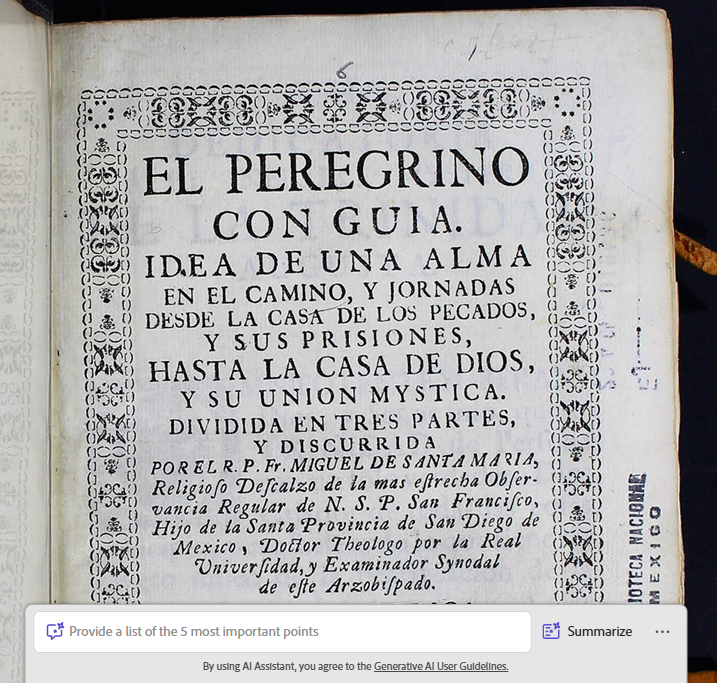 6
EL PEREGRINO
CON GUIA.
IDEA DE UNA ALMA
EN EL CAMINO, Y JORNADAS
DESDE LA CASA DE LOS PECADOS,
Y SUS PRISIONES,
HASTA LA CASA DE DIOS,
Y SU UNION MYSTICA.
DIVIDIDA EN TRES PARTES,
Y DISCURRIDA
POR EL R. P. Fr. MIGUEL DE SANTA MARIA,
Religioſo Deſcalzo de la mas eſtrecha Obſer-
vancia Regular de N. S. P. San Franciſco,
Hijo de la Santa Provincia de San Diego de
Mexico, Doctor Theologo por la Real
Univerſidad, y Examinador Synodal
de eſte Arzobiſpado.
IOTECA NACIONAL
MEXICO
Provide a list of the 5 most important points
Summarize
By using AI Assistant, you agree to the Generative AI User Guidelines.